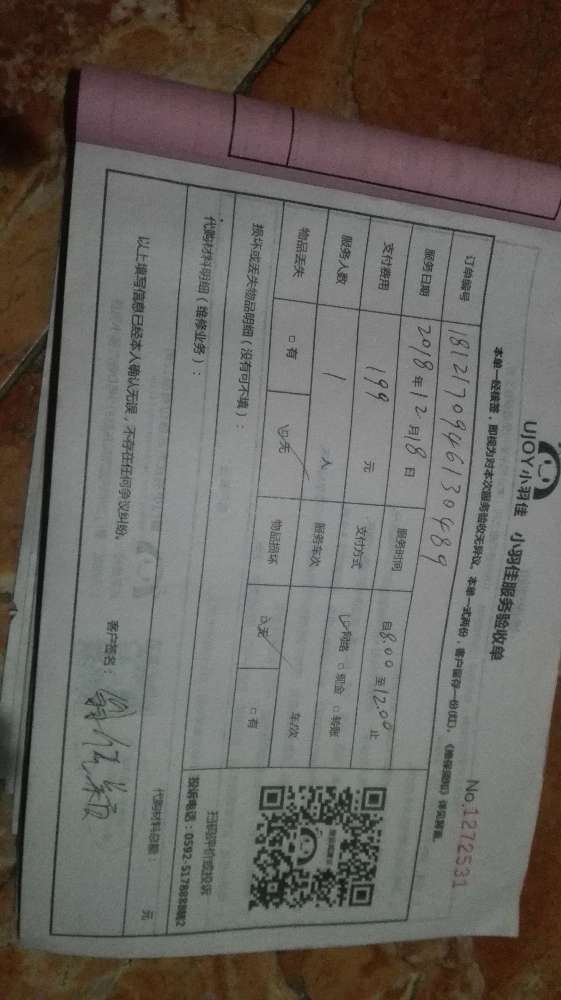 UJOY小羽佳 小羽佳服务验收单
No.1272531
本单一经核签，即视为对本次服务验收无异议。本单一式两份，客户留存一份(红)，
订单编号 181217094613 0489
服务日期 2018年12月18日 服务时间 自8:00至12:00止
支付费用 199 元 支付方式 ☑网络 □现金 □转账
服务人数 1 人 服务车次 车/次
物品丢失 □有 ☑无 物品损坏 ☑无 □有
损坏或丢失物品明细（没有可不填）：
代购材料明细（维修业务）：
代购材料总额： 元
以上填写信息已经本人确认无误，不存在任何争议纠纷。 客户签名：
扫码评价或投诉
投诉电话：0592-5178888转2